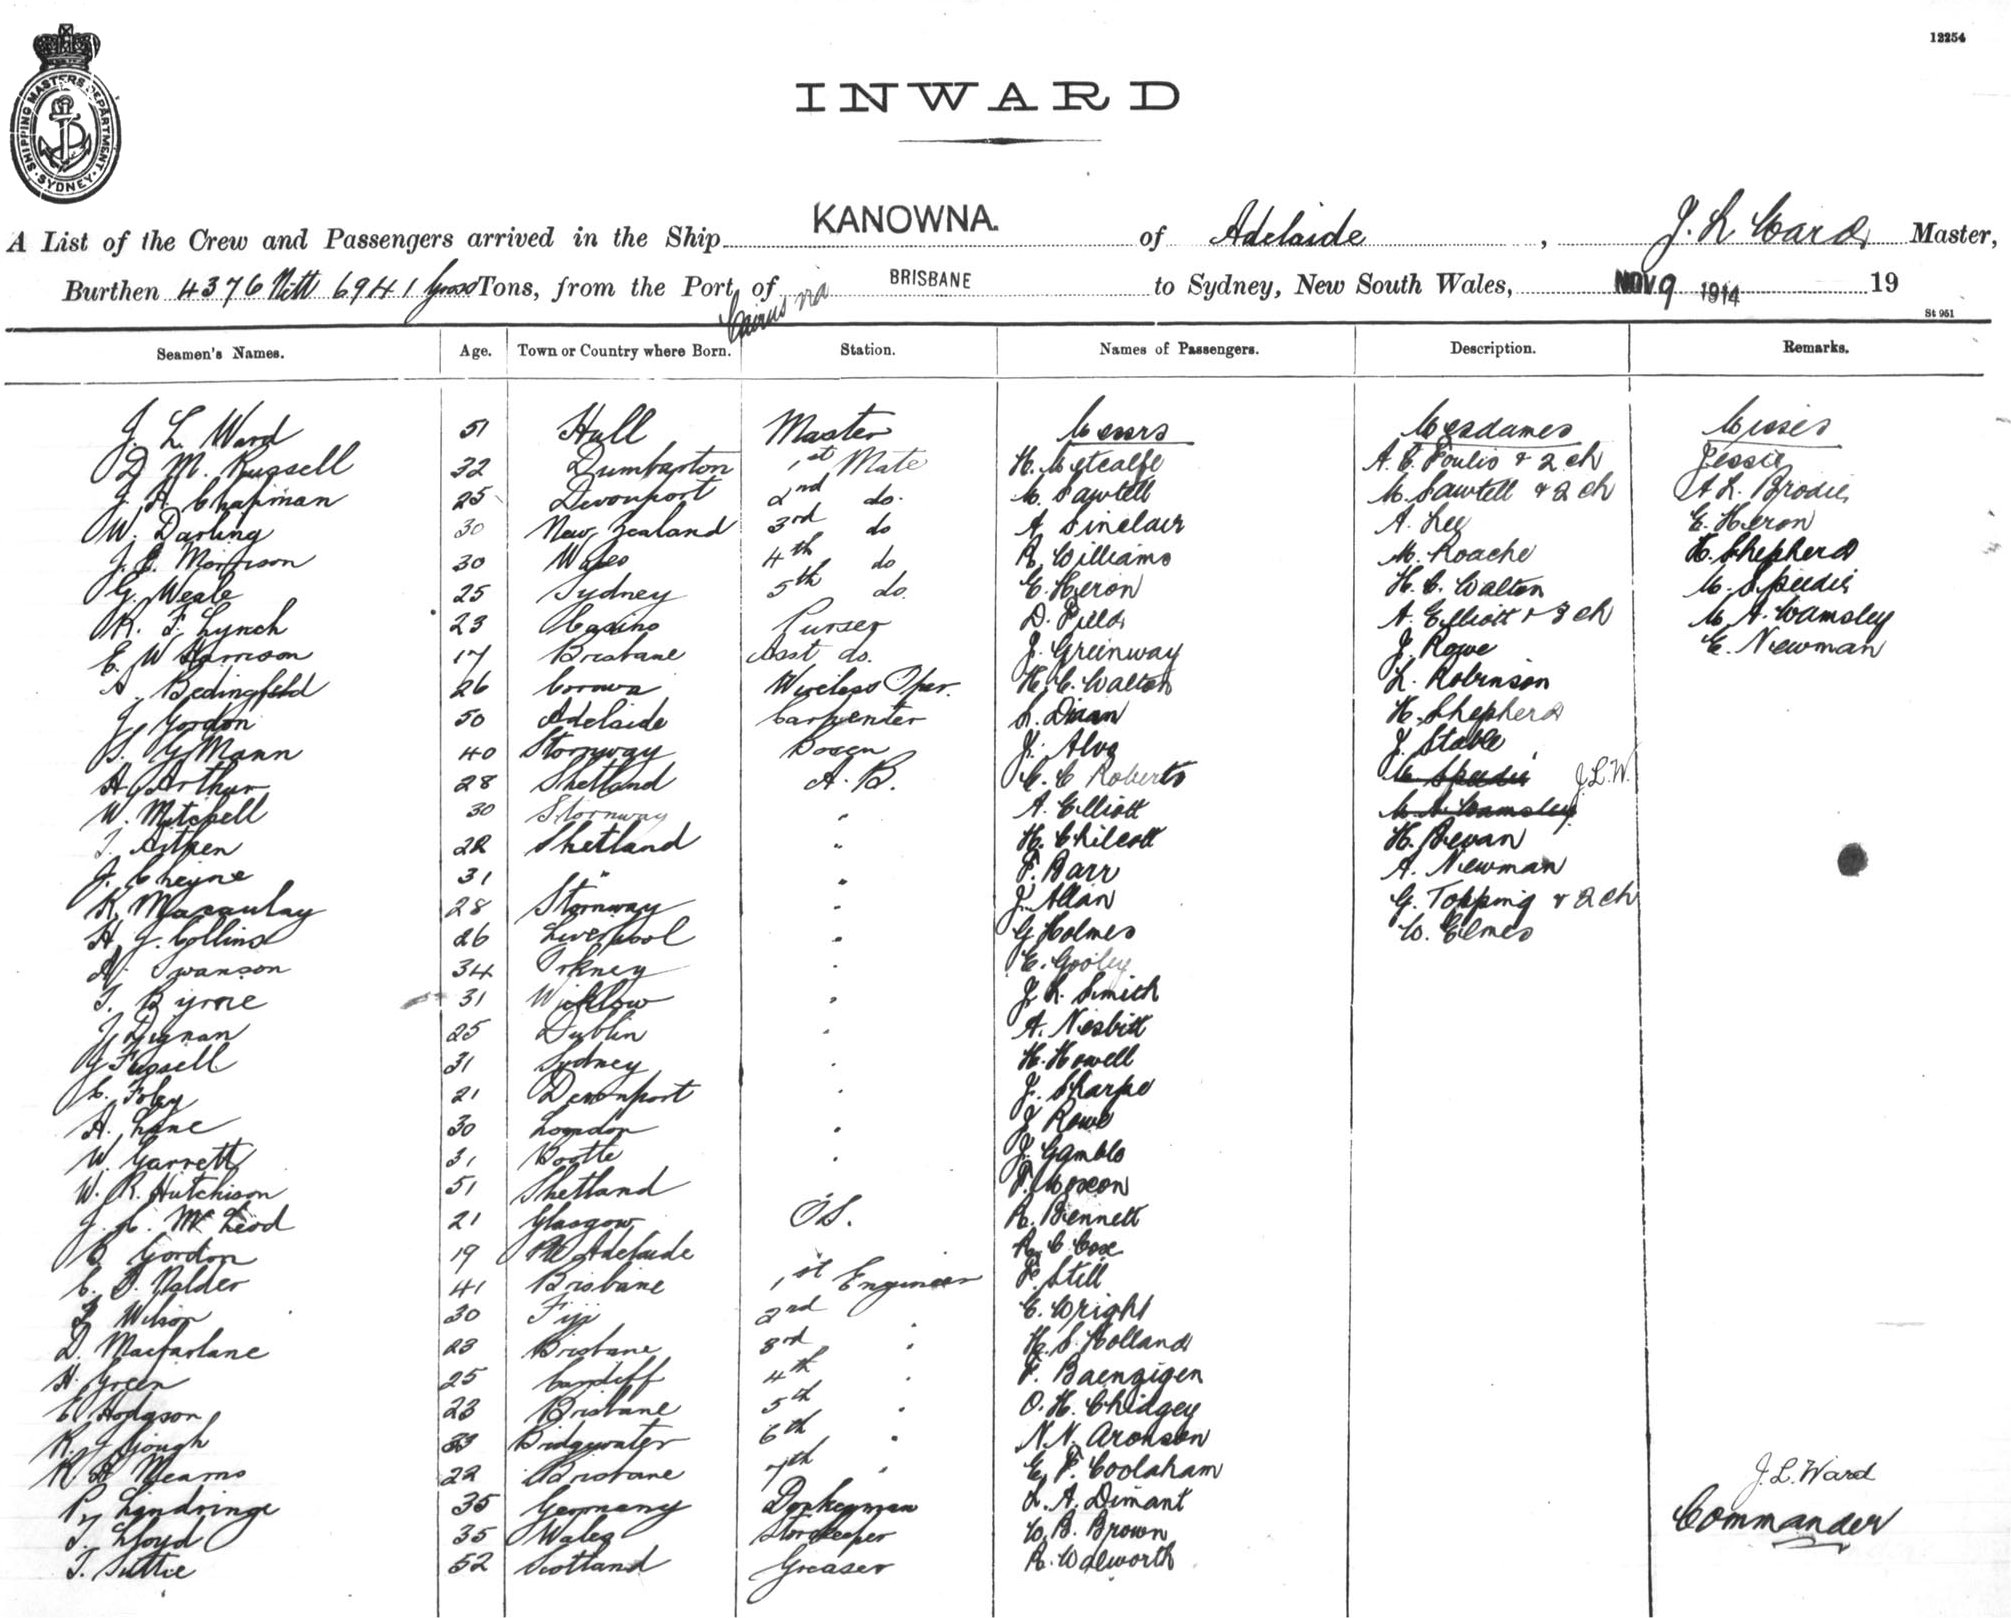 12254
SHIPPING MASTERS DEPARTMENT · SYDNEY ·
INWARD
A List of the Crew and Passengers arrived in the Ship KANOWNA. of Adelaide, J. L. Ward Master,
Burthen 4376 Nett 6941 Gross Tons, from the Port of Cairns via BRISBANE to Sydney, New South Wales, NOV 9 1914 19
St 951
Seamen's Names. Age. Town or Country where Born. Station. Names of Passengers. Description. Remarks.
J. L. Ward 51 Hull Master Messrs Mesdames Misses
D. M. Russell 32 Dumbarton 1st Mate H. Metcalfe A. E. Foulis & 2 ch Jessie
J. R. Chapman 25 Devonport 2nd do. M. Sawtell M. Sawtell & 2 ch A. L. Brodie
W. Darling 30 New Zealand 3rd do A. Sinclair A. Lee E. Heron
J. E. Morrison 30 Wales 4th do R. Williams M. Roache H. Shepherd
G. Weale 25 Sydney 5th do. E. Heron H. C. Walton M. Speedie
K. F. Lynch 23 Casino Purser D. Field A. Elliott & 3 ch M. A. Wamsley
E. W. Harrison 17 Brisbane Asst do. J. Greenway J. Rowe E. Newman
A. Bedingfeld 26 Corowa Wireless Oper. H. C. Walton L. Robinson
J. Gordon 50 Adelaide Carpenter S. Dinan H. Shepherd
S. G. Mann 40 Stornway Bosen J. Alva J. Stable
A. Arthur 28 Shetland A. B. C. C. Roberts M. Speedie J.L.W.
W. Mitchell 30 Stornway " A. Elliott M. A. Wamsley
T. Aitken 22 Shetland " H. Chilcott H. Bevan
J. Cheyne 31 " " F. Barr A. Newman
K. Macaulay 28 Stornway " J. Allan G. Topping & 2 ch
H. J. Collins 26 Liverpool " G. Holmes W. Elmes
A. Swanson 34 Orkney " E. Gooley
T. Byrne 31 Wicklow " J. L. Smith
J. Dignan 25 Dublin " A. Nesbitt
G. Fussell 31 Sydney " H. Howell
C. Foley 21 Devonport " J. Sharpe
A. Lane 30 London " J. Rowe
W. Garrett 31 Bootle " J. Gamble
W. R. Hutchison 51 Shetland F. Moxon
J. A. McLeod 21 Glasgow O.S. R. Bennett
C. Gordon 19 Pt Adelaide R. C. Cox
C. P. Valder 41 Brisbane 1st Engineer F. Still
Wilson 30 Fiji 2nd " E. Wright
D. Macfarlane 23 Brisbane 3rd " H. S. Holland
H. Green 25 Cardiff 4th " F. Baenzigen
E. Hodgson 23 Brisbane 5th " O. H. Chidgey
R. J. Gough 33 Bridgwater 6th " N. N. Aronson
K. D. Mearns 22 Brisbane 7th " E. F. Coolaham J. L. Ward
P. Lendringe 35 Germany Donkeyman L. A. Dimant Commander
T. Lloyd 35 Wales Storekeeper W. B. Brown
T. Suttie 52 Scotland Greaser R. Walworth